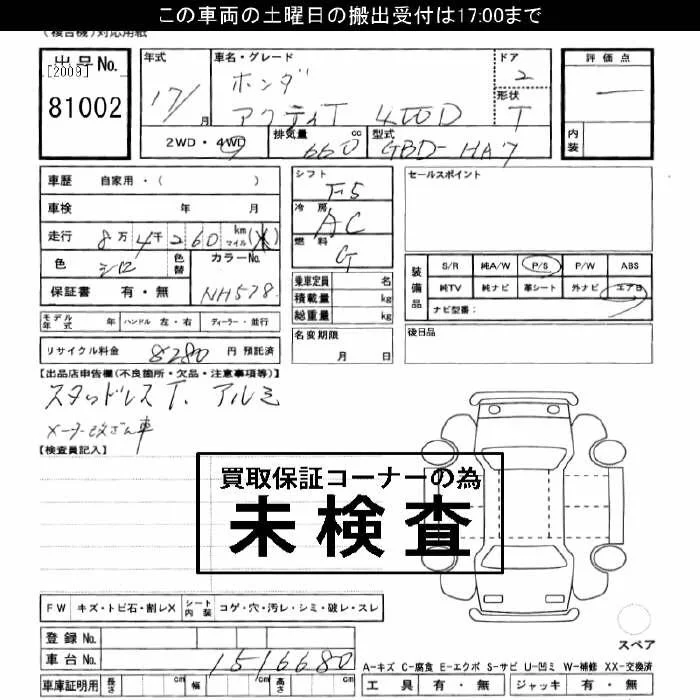 この車両の土曜日の搬出受付は17:00まで
(複合機)対応用紙
出品No.
[2009]
81002
年式
17/
月
車名・グレード
ホンダ
アクティT 4WD
ドア
2
形状
T
2WD・4WD
排気量
660
cc
型式
GBD-HA7
評価点
—
内装
車歴 自家用・( )
車検 年 月
走行 8万4千260 km マイル (X)
色 シロ 色替 カラーNo. NH578
保証書 有・無
シフト
F5
冷房
AC
燃料
G
乗車定員 名
積載量 kg
総重量 kg
名変期限
月 日
セールスポイント
装備品
S/R 純A/W P/S P/W ABS
純TV 純ナビ 革シート 外ナビ エアB
ナビ型番:
後日品
モデル年式 年 ハンドル 左・右 ディーラー・並行
リサイクル料金 8280 円 預託済
【出品店申告欄(不良箇所・欠品・注意事項等)】
スタッドレスT. アルミ
メーター改ざん車
【検査員記入】
買取保証コーナーの為
未検査
FW キズ・トビ石・割レX シート内装 コゲ・穴・汚レ・シミ・破レ・スレ
登録No.
車台No. 1516680
車庫証明用 長さ cm 幅 cm 高さ cm
スペア
A-キズ C-腐食 E-エクボ S-サビ U-凹ミ W-補修 XX-交換済
工具 有・無 ジャッキ 有・無